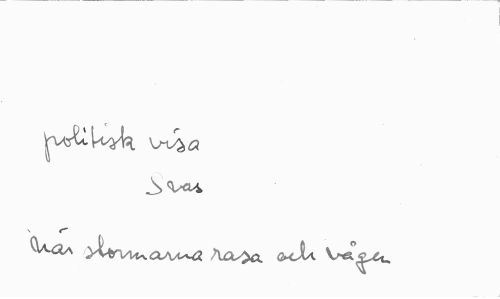 politisk visa
Svas
När stormarna rasa och vågen